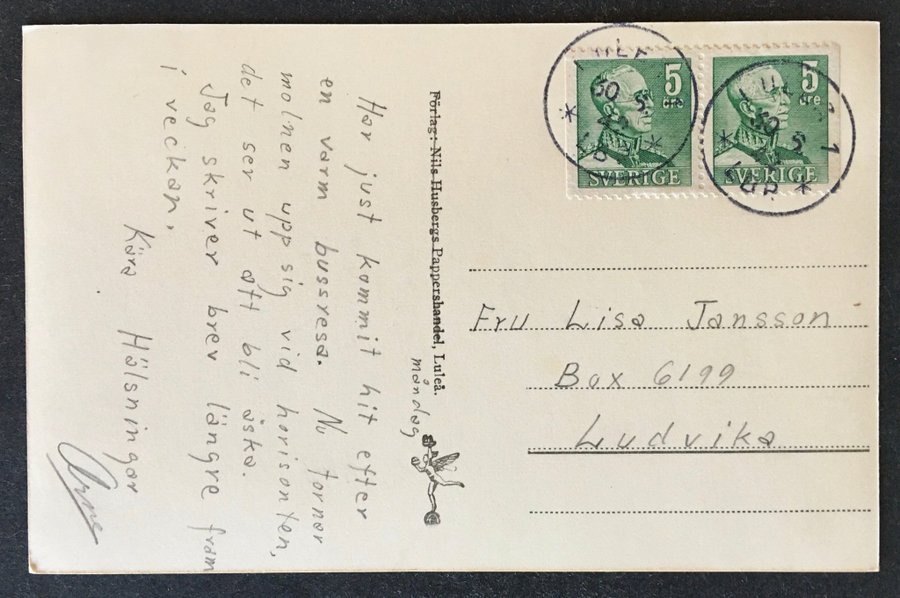 måndag
Har just kommit hit efter
en varm bussresa. Nu tornar
molnen upp sig vid horisonten,
det ser ut att bli åska.
Jag skriver brev längre fram
i veckan.
Kära Hälsningar
Arne
Förlag: Nils Husbergs Pappershandel, Luleå.
5
öre
SVERIGE
5
öre
SVERIGE
LULEÅ 1
30 5
Fru Lisa Jansson
Box 6199
Ludvika